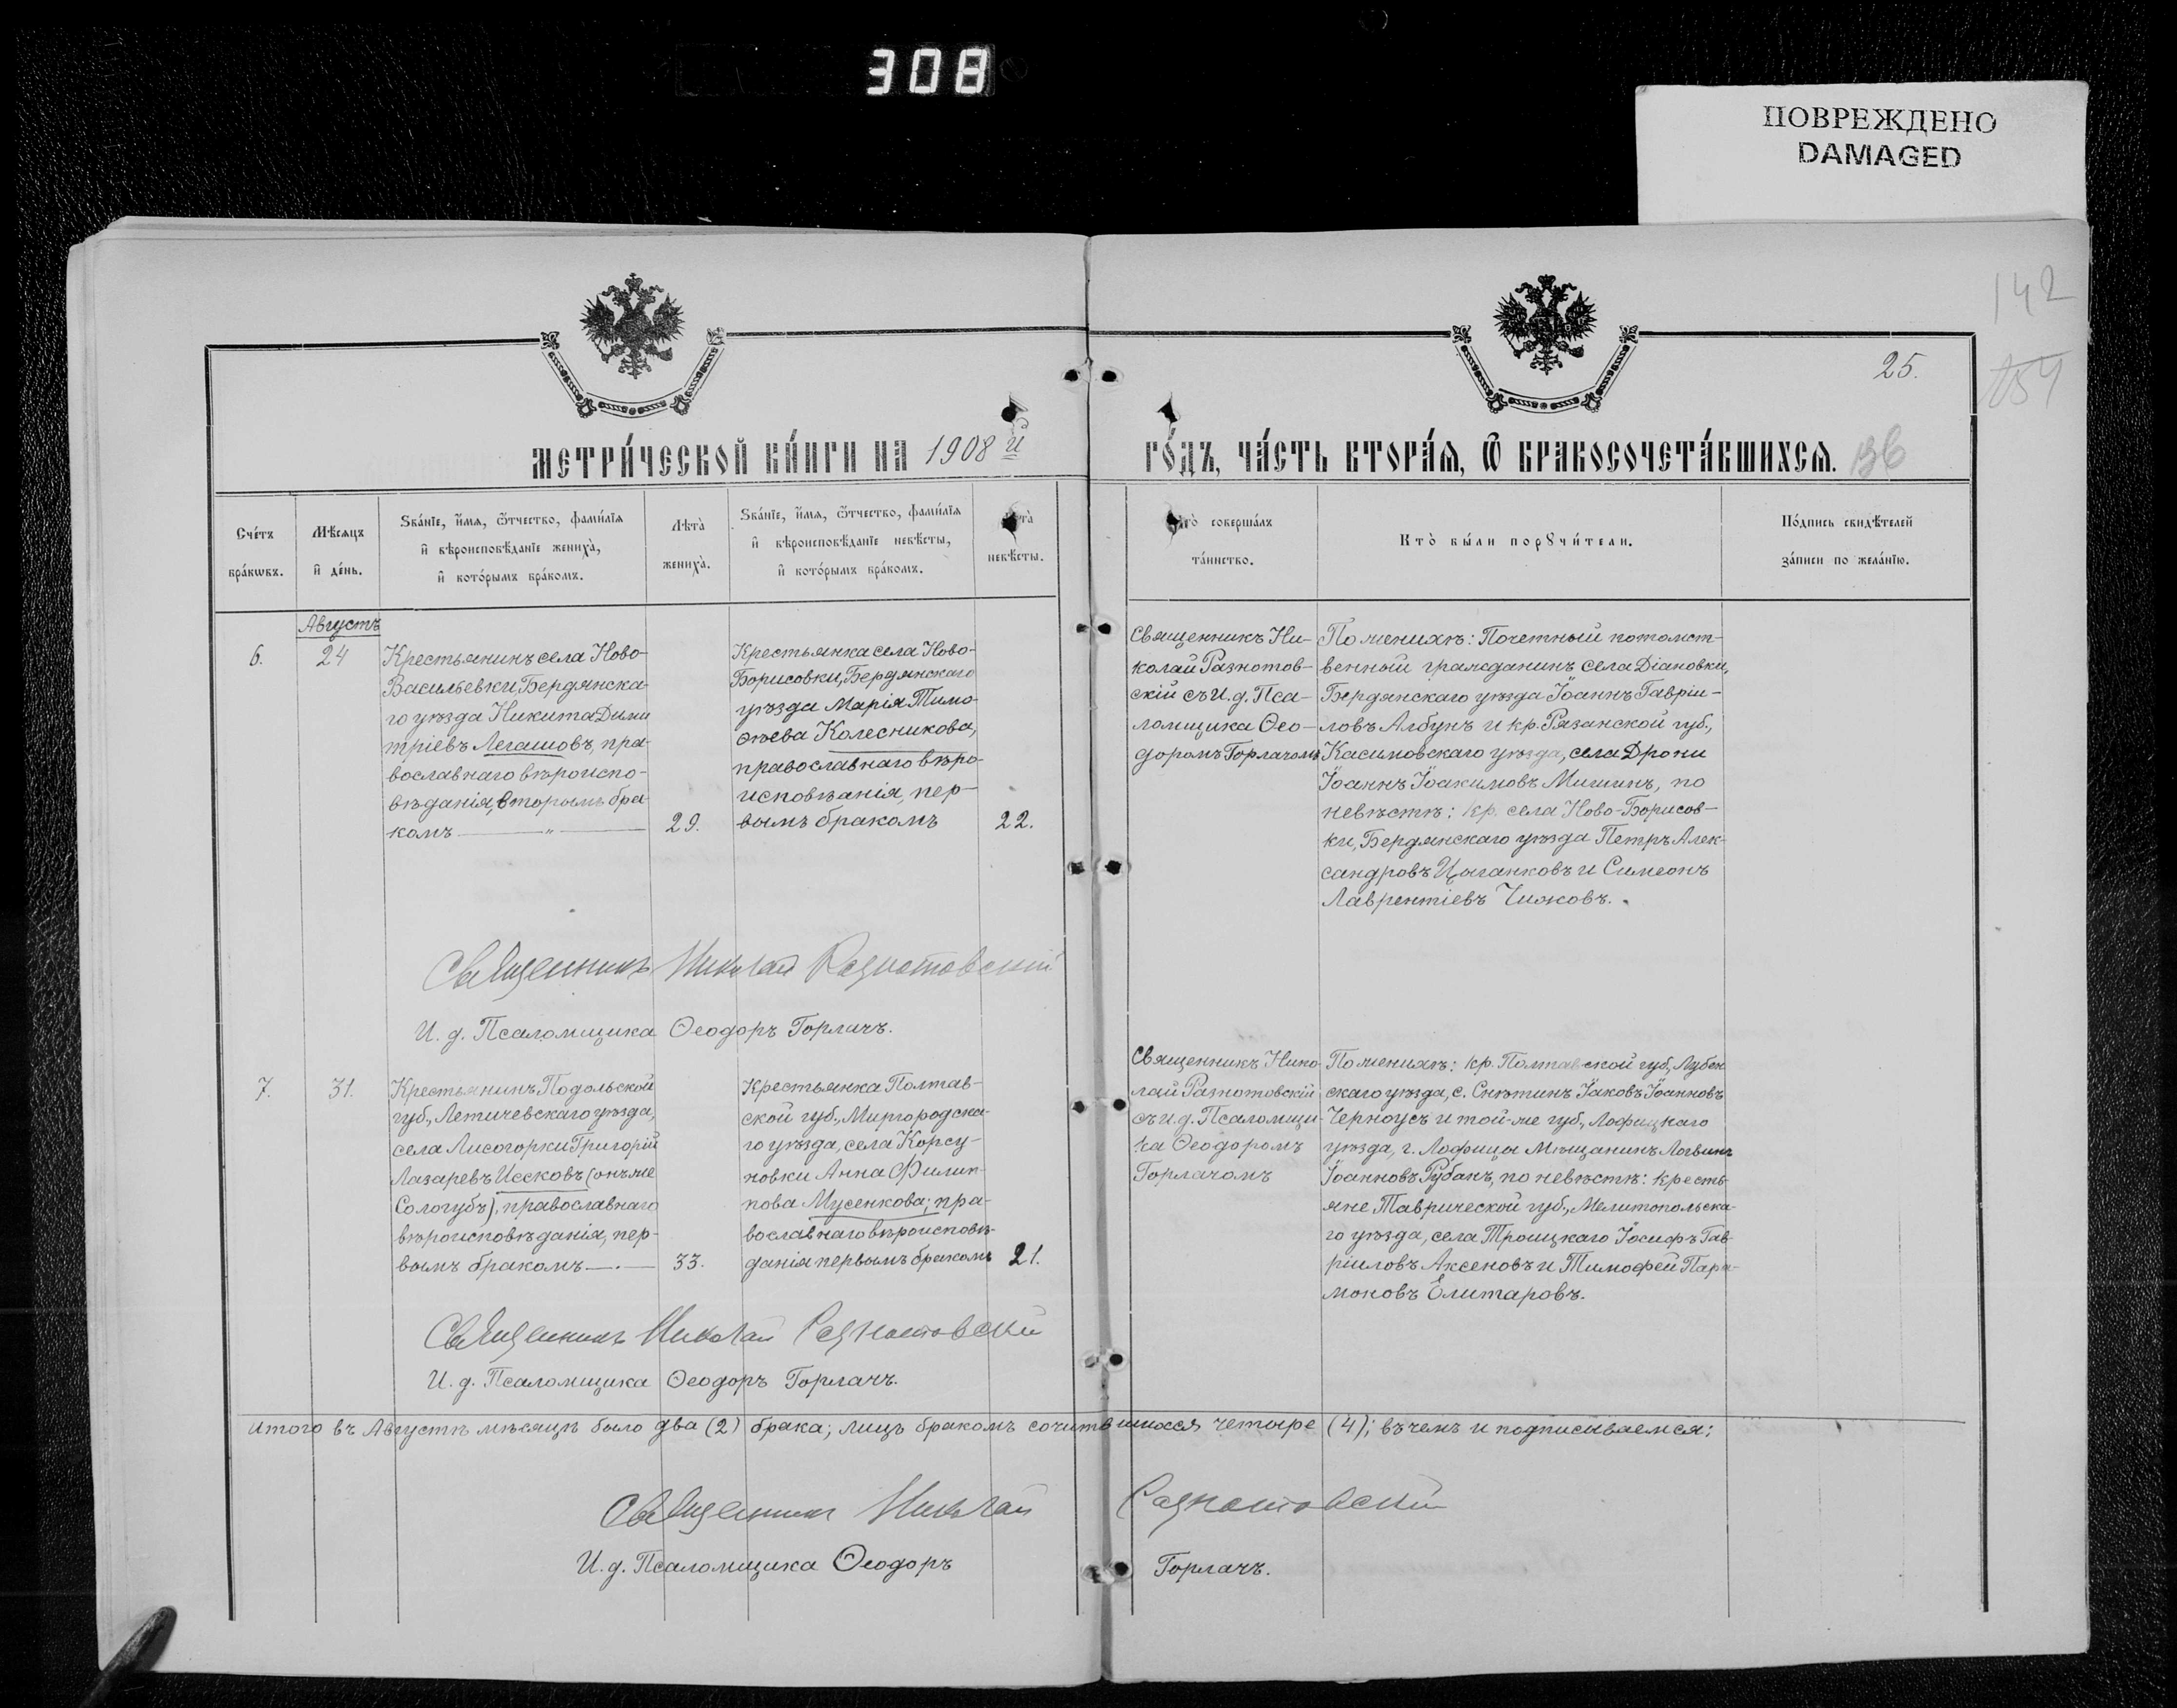 308
ПОВРЕЖДЕНО
DAMAGED
142
25.
154
МЕТРИ́ЧЕСКОЙ КНИ́ГИ НА 1908 й
ГО́ДЪ, ЧА́СТЬ ВТОРА́Я, Ѿ БРАКОСОЧЕТА́ВШИХСЯ. 136
Сче́тъ
бра́кѡвъ.
Мѣ́сяцъ
и҆ де́нь.
Ѕва́нїе, и҆́мя, ѻ҆́тчество, фами́лїя
и҆ вѣроисповѣ́данїе жениха̀,
и҆ кото́рымъ бра́комъ.
Лѣта̀
жениха̀.
Ѕва́нїе, и҆́мя, ѻ҆́тчество, фами́лїя
и҆ вѣроисповѣ́данїе невѣ́сты,
и҆ кото́рымъ бра́комъ.
невѣ́сты.
совершáлъ
тáинство.
Кто̀ бы́ли порꙋчи́тели.
По́дпись свидѣ́телей
зáписи по желáнїю.
Августъ
6.
24
Крестьянинъ села Ново-
Васильевки, Бердянска-
го уѣзда Никита Дими
тріевъ Легашовъ, пра-
вославнаго вѣроиспо-
вѣданія, вторымъ бра-
комъ — " —
29.
Крестьянка села Ново-
Борисовки, Бердянскаго
уѣзда Марія Тимо-
ѳѣева Колесникова,
православнаго вѣро-
исповѣанія, пер-
вымъ бракомъ
22.
Священникъ Ни-
колай Разнотов-
скій съ И. д. Пса-
ломщика Ѳео-
доромъ Горлачомъ
По женихѣ: Почетный потомст-
венный гражданинъ села Діановки,
Бердянскаго уѣзда Іоаннъ Гавріи-
ловъ Албунъ и кр. Рязанской губ.,
Касимовскаго уѣзда, села Дрони
Іоаннъ Іоакимовъ Мишинъ, по
невѣстѣ: кр. села Ново-Борисов-
ки, Бердянскаго уѣзда Петръ Алек-
сандровъ Цыганковъ и Симеонъ
Лаврентіевъ Чижовъ.
Священникъ Николай Разнотовский
И. д. Псаломщика Ѳеодоръ Горлачъ.
7.
31.
Крестьянинъ Подольской
губ., Летичевскаго уѣзда,
села Лисогорки Григорій
Лазаревъ Иесковъ (онъ же
Сологубъ), православнаго
вѣроисповѣданія, пер-
вымъ бракомъ —.—
33.
Крестьянка Полтав-
ской губ., Миргородска-
го уѣзда, села Корсу-
новки Анна Филип-
пова Мусенкова; пра-
вославнаго вѣроисповѣ-
данія первымъ бракомъ
21.
Священникъ Нико-
лай Разнотовскій
съ и. д. Псаломщи-
ка Ѳеодоромъ
Горлачомъ
По женихѣ: кр. Полтавской губ., Лубен
скаго уѣзда, с. Снѣтинъ Іаковъ Іоанновъ
Черноусъ и той-же губ., Лофицкаго
уѣзда, г. Лофицы Мѣщанинъ Логвинъ
Іоанновъ Рубанъ, по невѣстѣ: кресть-
яне Таврической губ., Мелитопольска-
го уѣзда, села Троицкаго Іосифъ Гав-
ріиловъ Аксеновъ и Тимофей Пара-
моновъ Елитаровъ.
Священникъ Николай Разнотовский
И. д. Псаломщика Ѳеодоръ Горлачъ.
Итого въ Августѣ мѣсяцѣ было два (2) брака; лицъ бракомъ сочитавшихся четыре (4); въ чемъ и подписываемся:
Священникъ Николай Разнотовский
И. д. Псаломщика Ѳеодоръ Горлачъ.